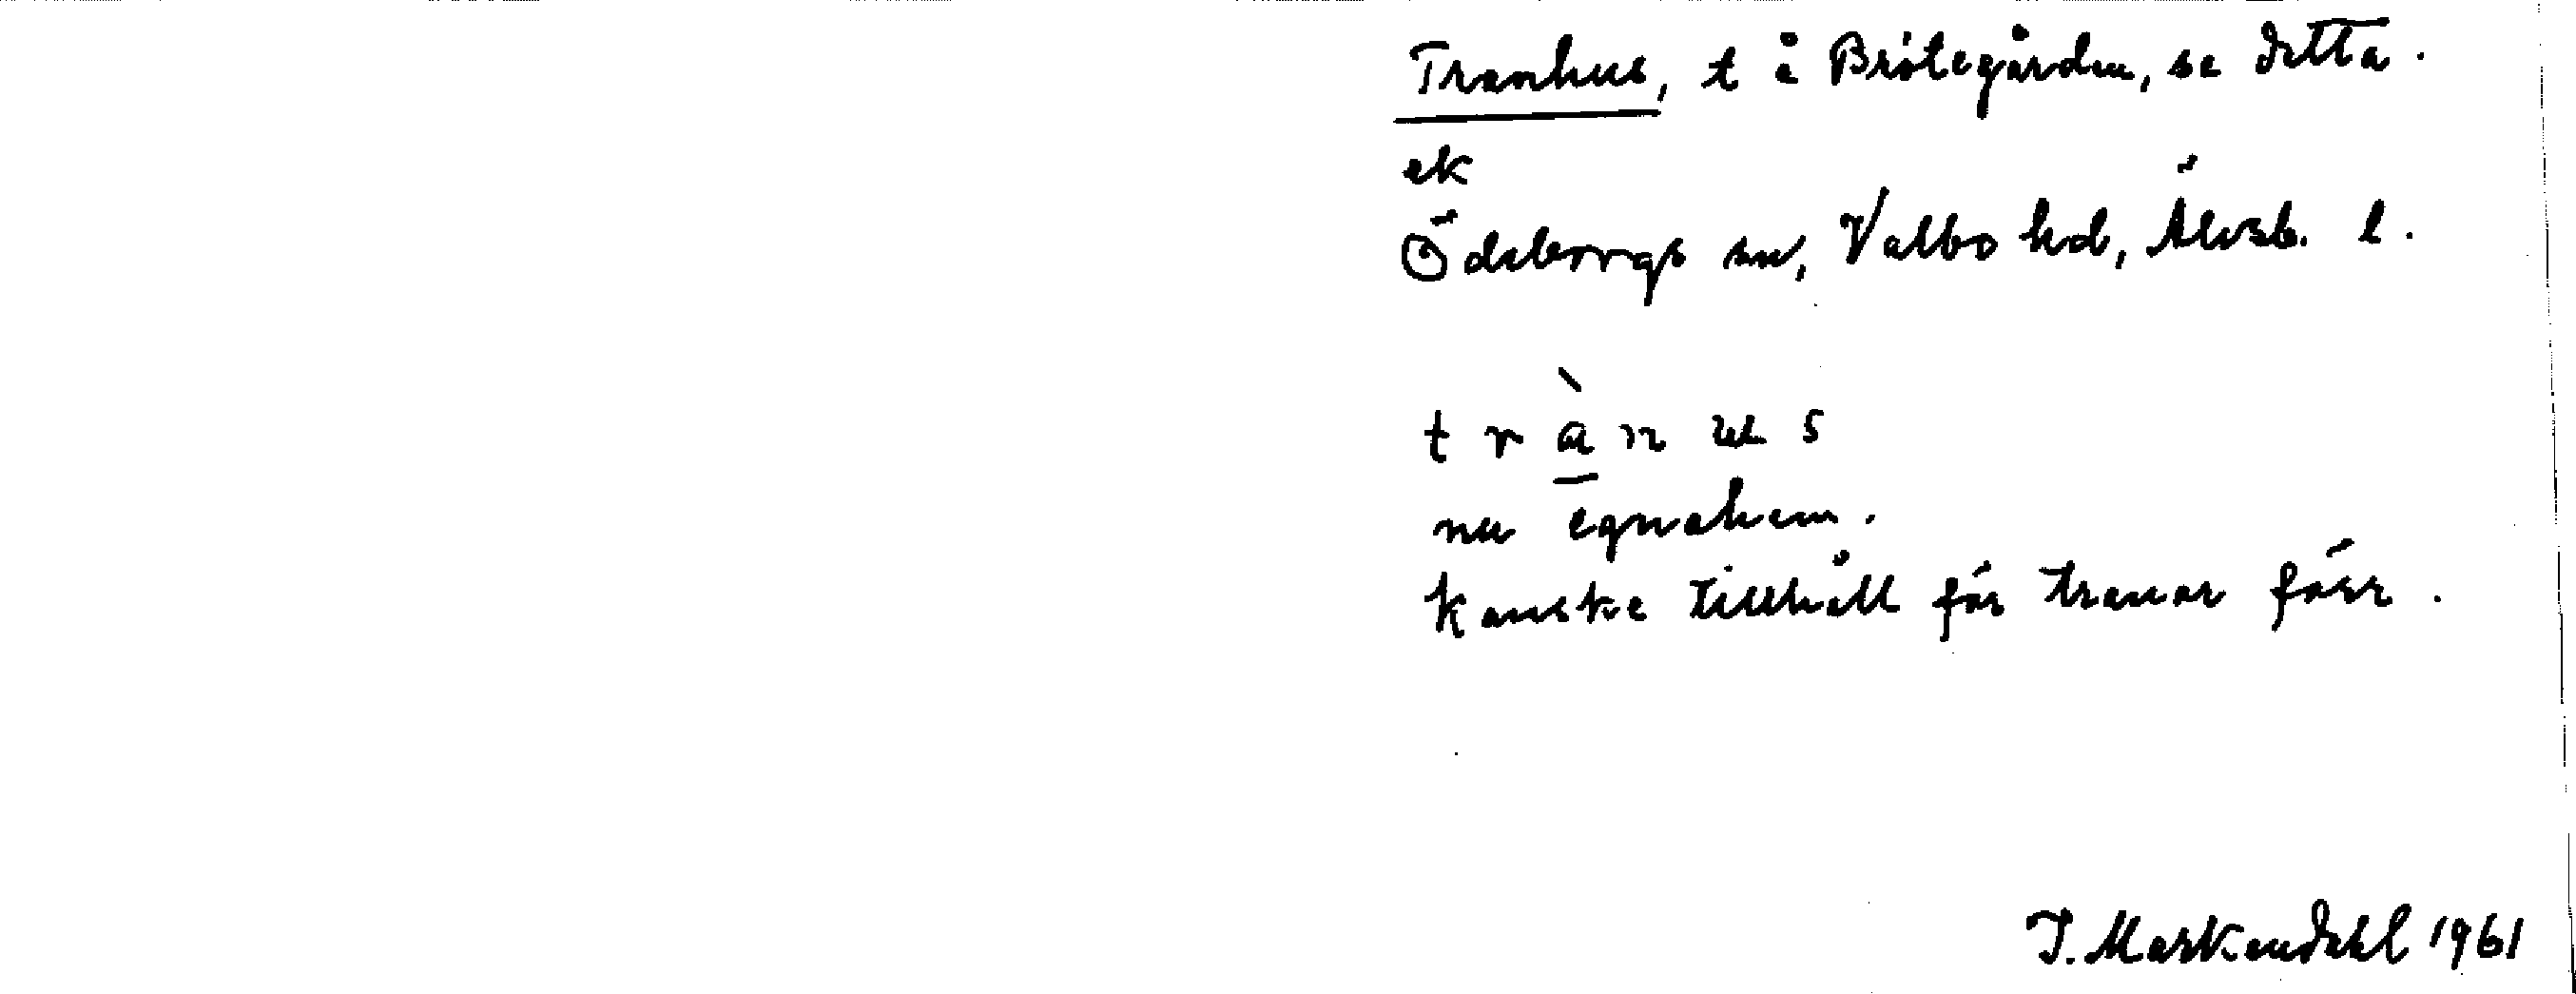 Tranhus, t å Brötegården, se detta.
ek
Ödeborgs sn, Valbo hd, Älvsb. l.
t r à n u s
nu egnahem.
Kanske tillhåll för tranar förr.
I. Markendahl 1961